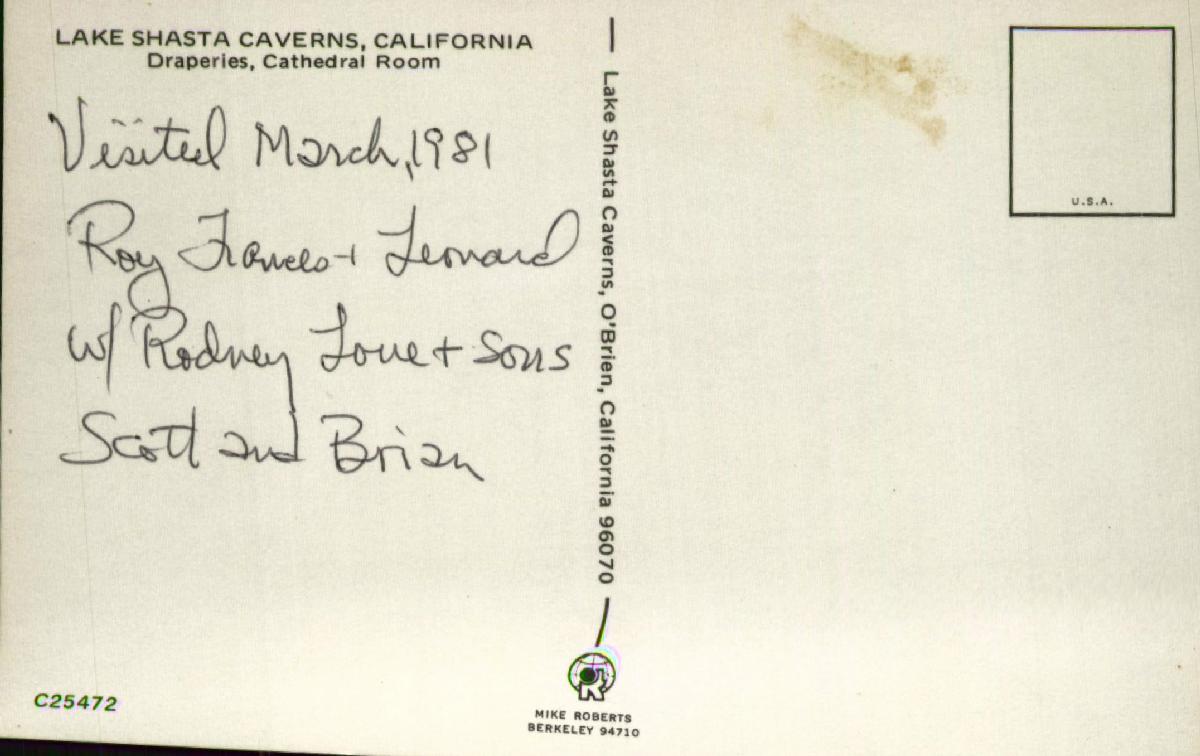 LAKE SHASTA CAVERNS, CALIFORNIA
Draperies, Cathedral Room
Visited March, 1981
Roy Frances + Leonard
w/ Rodney Love + sons
Scott and Brian
C25472
Lake Shasta Caverns, O'Brien, California 96070
MIKE ROBERTS
BERKELEY 94710
U.S.A.